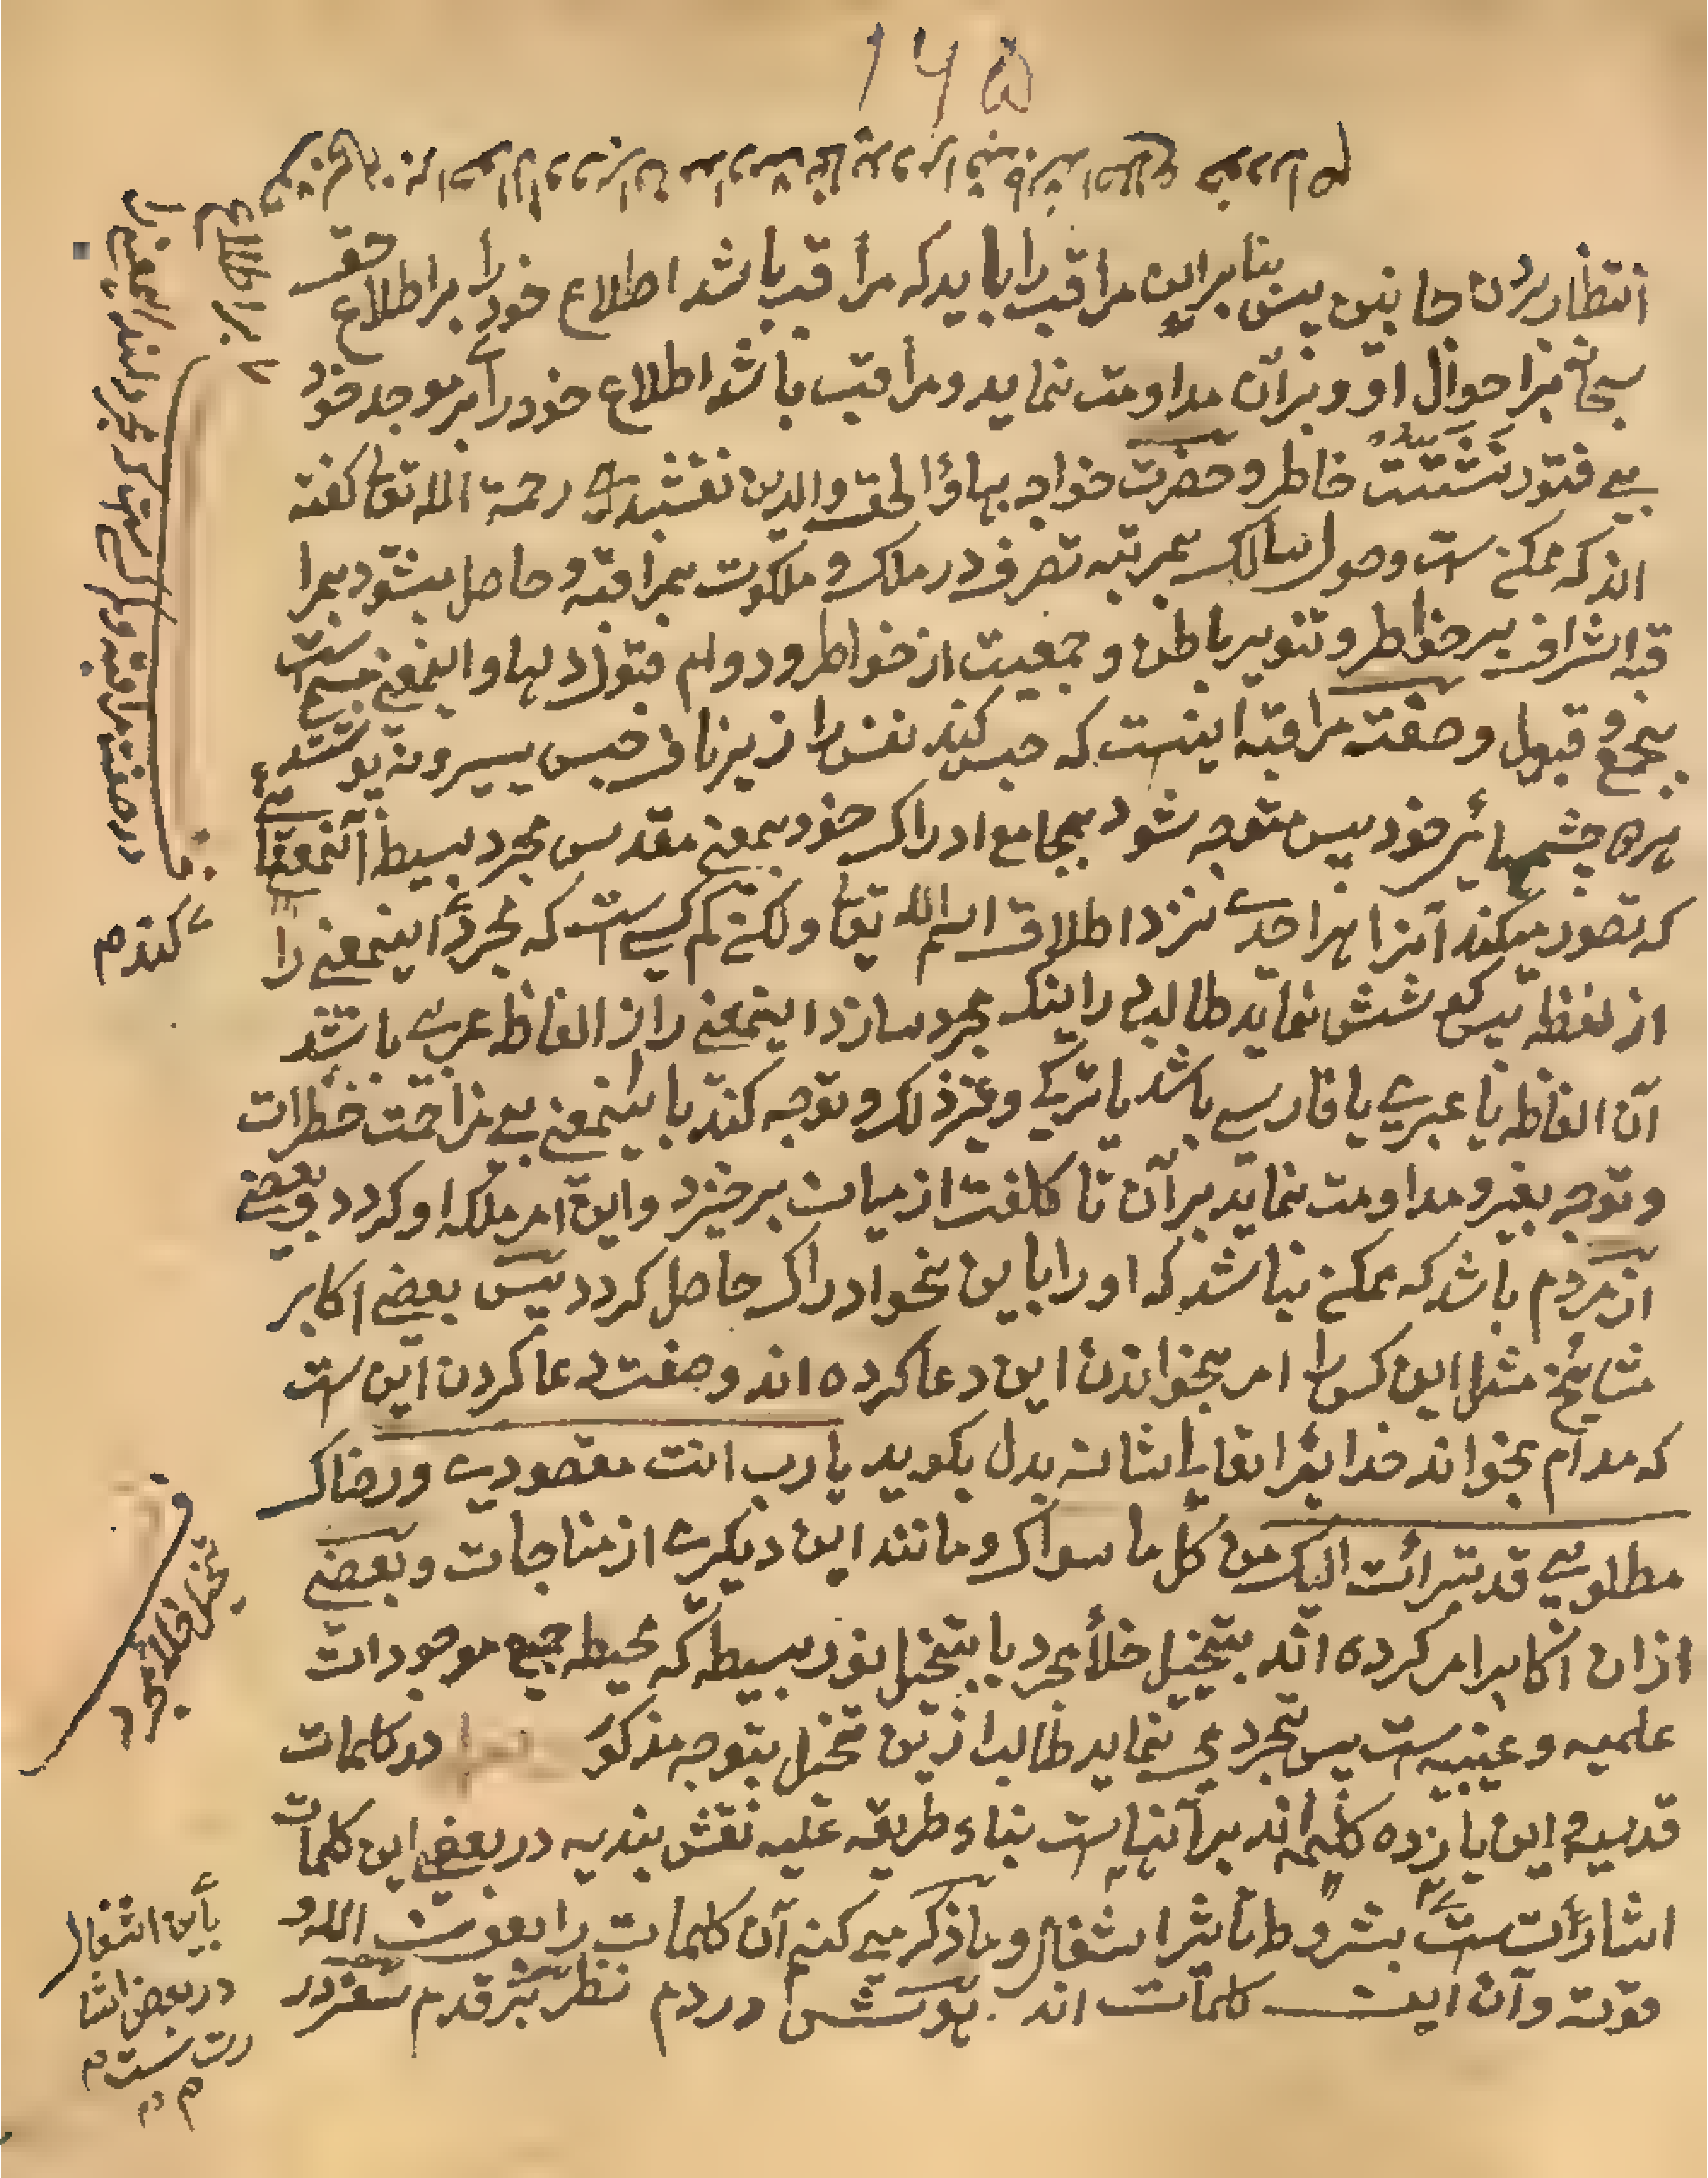 ۱۶۵
انتظار بردن جانبین پس بنا براین مراقب را باید که مراقب باشد اطلاع خود را بر اطلاع حق
سبحانه بر احوال او و بران مداومت نماید و مراقب باشد اطلاع خود را بر موجد خود
بے فتور تشتت خاطر و حضرت خواجه بهاؤالحق والدین نقشبند رحمة الله تعالی گفته
اند که ممکن ست وصول سالک بمرتبه تصرف در ملک و ملکوت بمراقبه و حاصل میشود بمرا
قبه اشراف بر خواطر و تنویر باطن و جمعیت از خواطر و دوام قبول دلها و اینمعنے ست
بجمع و قبول وصفت مراقبه اینست که حبس کند نفس را زیر ناف حبس یسیر و بپوشد
هر دو چشمهائے خود پس متوجه شود بمجامع ادراک خود بمعنے مقدس مجرد بسیط آنمعنے
که تصور میکند آنرا هر احدے نزد اطلاق اسم الله تعالی ولکن کم کسے ست که مجرد اینمعنے را
از لفظ پس کوشش نماید طالب را اینکه مجرد سازد اینمعنے را از الفاظ عربے باشد
آن الفاظ یا عبرے یا فارسے باشد یا ترکے و غیر ذلک و توجه کند باینمعنے بے مزاحمت خطرات
و توجه بغیر و مداومت نماید بران تا کلفت از میان برخیزد و این امر ملکه او گردد و بعضے
از مردم باشد که ممکن نباشد که او را باین نحو ادراک حاصل گردد پس بعضے اکابر
مشایخ مثل این کس را امر بخواندن این دعا کرده اند وصفت دعا کردن این ست
که مدام بخواند خدایرا تعالی شانه بدل بگوید یا رب انت مقصودی و رضاک
مطلوبی قد تبرأت الیک من کل ما سواک و مانند این دیگرے از مناجات و بعضے
ازان اکابر امر کرده اند بتخیل خلأ مجرد یا بتخیل نور بسیط که محیط جمیع موجودات
علمیه و عینیه ست پس تجرد می نماید طالب ازین تخیل بتوجه مذکور در کلمات
قدسیه و این یازده کلمه اند بر آنهاست بناء طریقه علیه نقش بندیه در بعضے این کلمات
اشارات ست بشروط تاثیر اشغال و ما ذکر مے کنیم آن کلمات را بعون الله و
قوته و آن این کلمات اند هوش در دم نظر بر قدم سفر در
بر اطلاع
کندم
تخیل خلاء مجرد
باین اشغال
در بعض اشا
رت ست م